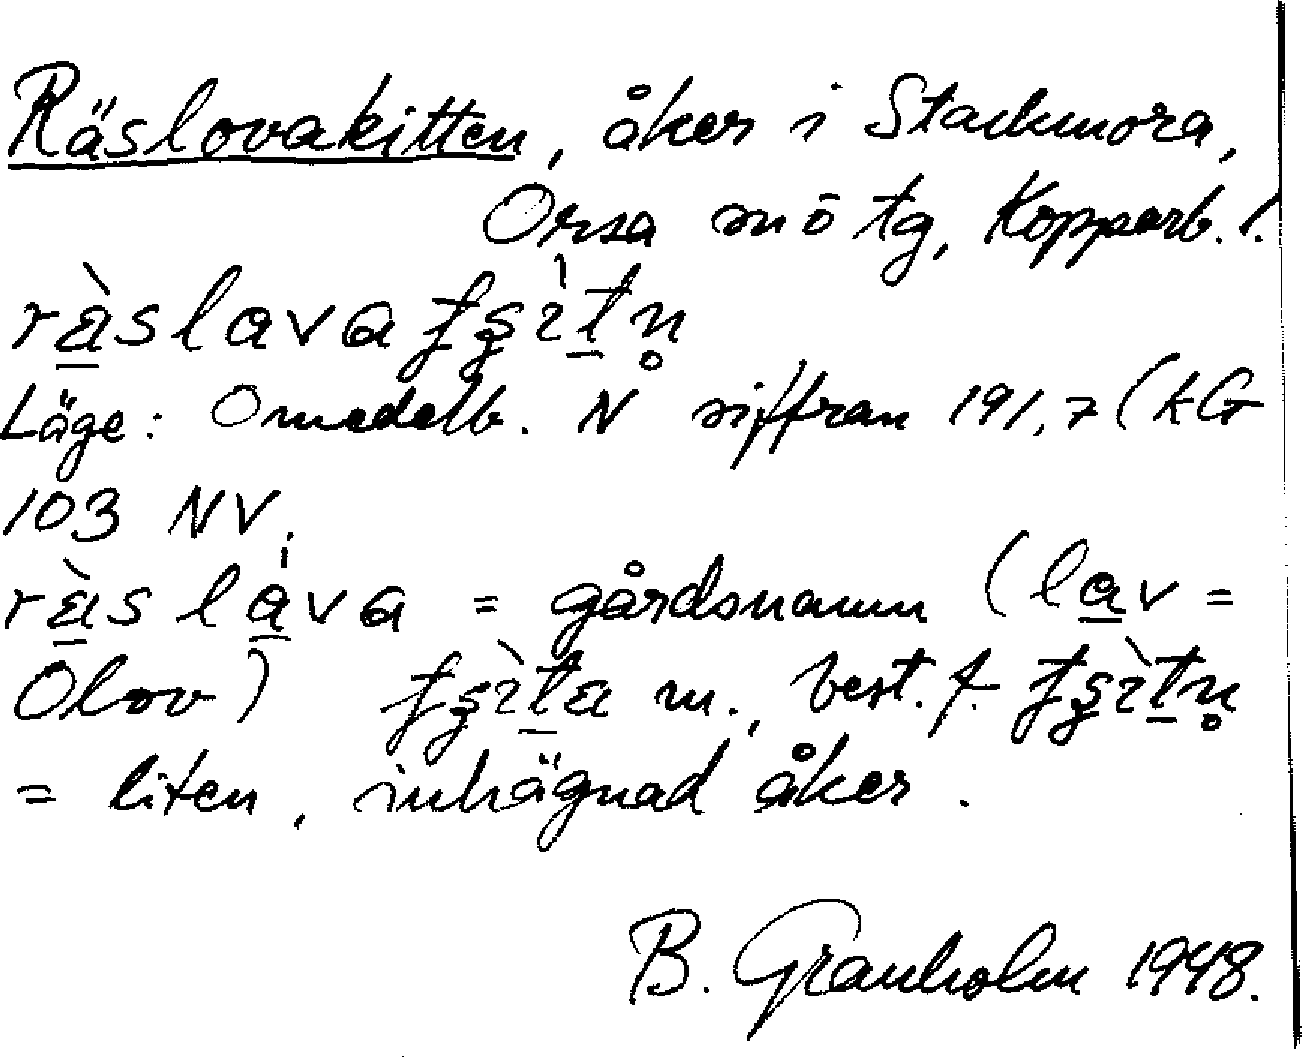 Räslovakitten, åker i Stackmora,
Orsa snö tg, Kopparb. l.
rä̀slavaʈʂìtn̥
Läge: Omedelb. N siffran 191,7 (kG
103 NV.
rä̀s láva = gårdsnamn (lav =
Olov) ʈʂìta m., best. f. ʈʂìtn̥
= liten, inhägnad åker.
B. Granholm 1948.